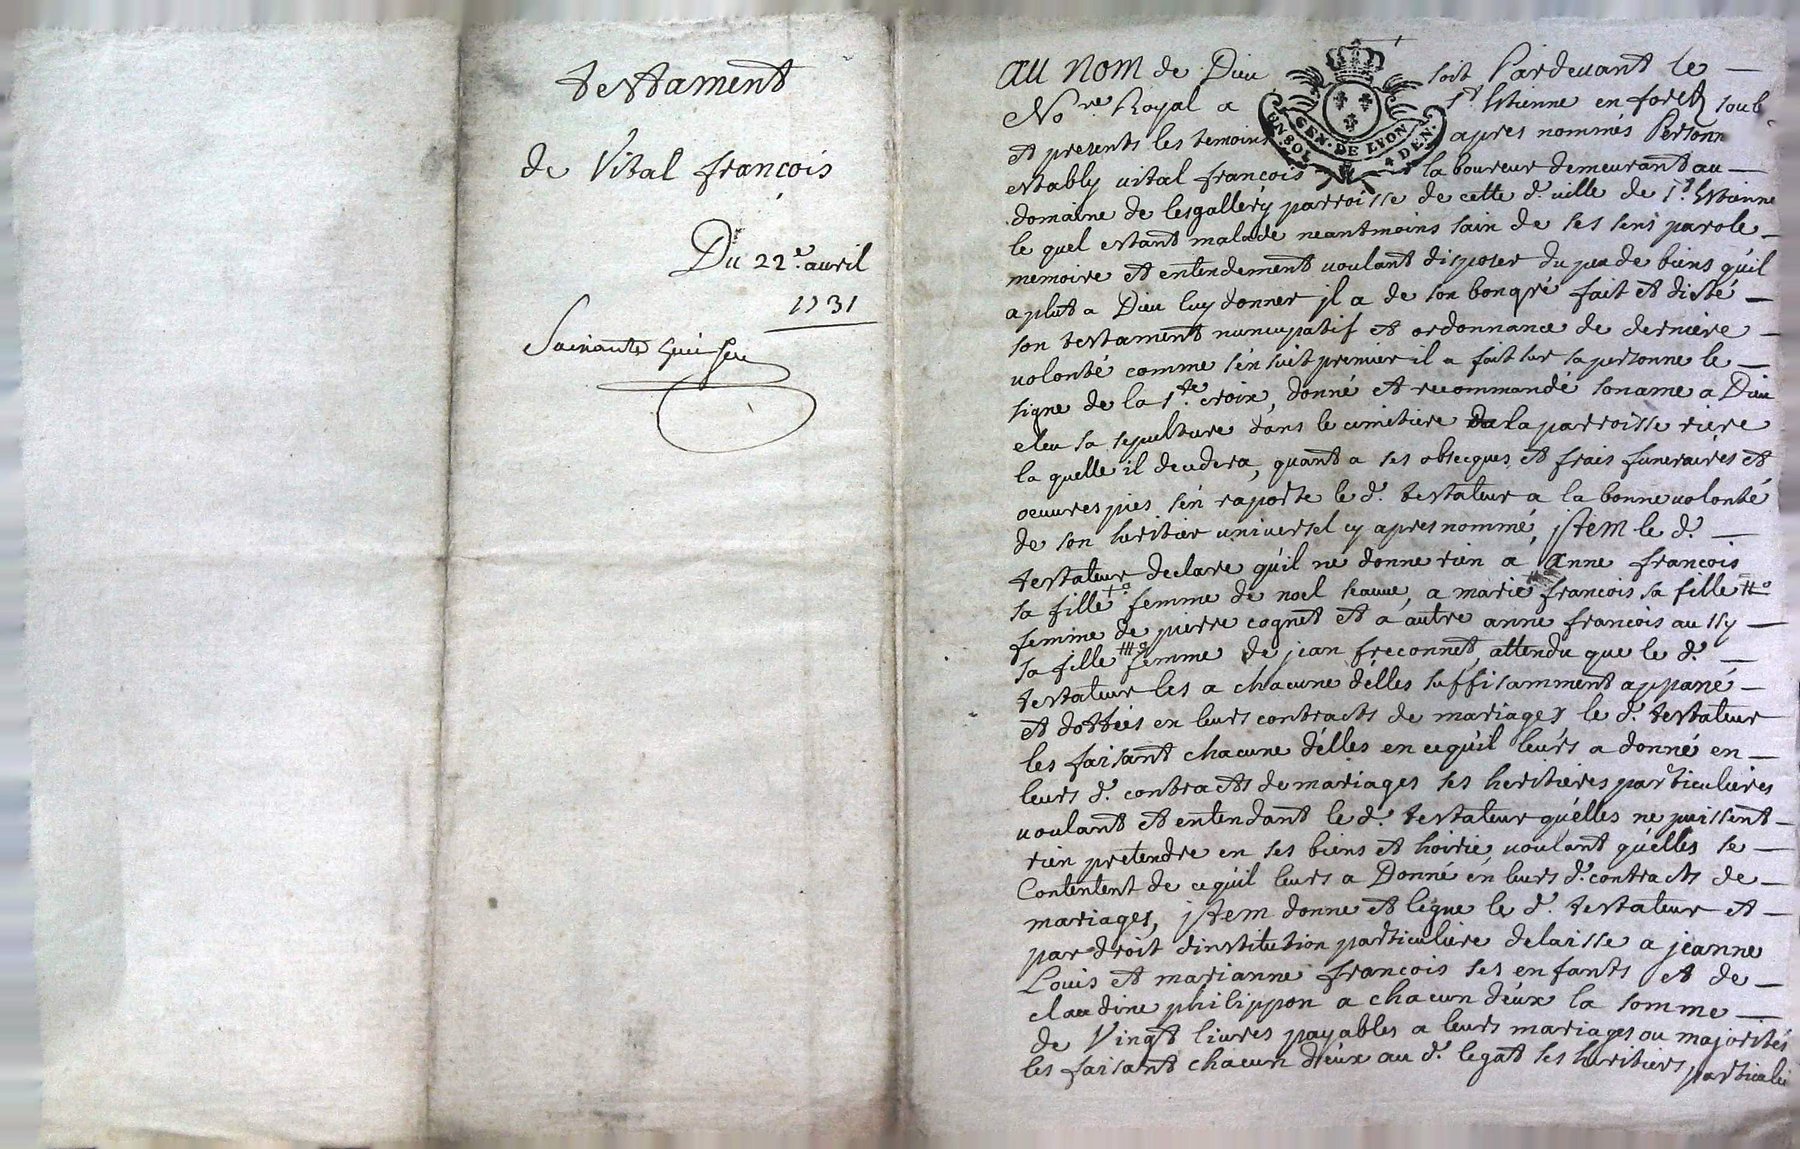 testament
de Vital françois
Du 22e. avril
1731
au nom de Dieu soit Pardevant le
Nore. Royal a St. Estienne en forest soub
et presents les temoins apres nommés Personn
estably vital françois laboureur demeurant au
domaine de Lesgallery parroisse de cette d. ville de St. Estienne
le quel estant malade neantmoins sain de ses sens parole
memoire et entendement voulant disposer du peu de biens qu'il
a plut a Dieu luy donner jl a de son bon gré fait et dicté
son testament nuncupatif et ordonnance de derniere
volonté comme s'en suit premier il a fait sur sa personne le
signe de la Ste. croix, donné et recommandé son ame a Dieu
eleu sa sepulture dans le cimitiere de la parroisse riere
la quelle il decedera, quant a ses obseques et frais funeraires et
oeuvres pies s'en raporte le d. testateur a la bonne volonté
de son heritier universel cy apres nommé, jtem le d.
testateur declare qu'il ne donne rien a Anne francois
sa fille femme de noel seauve, a marie francois sa fille
femme de pierre cognet et a autre anne francois aussy
sa fille femme de jean freconnet, attendu que le d.
testateur les a chacune d'elles suffisamment appané
et dottées en leurs contracts de mariages le d. testateur
les faisant chacune d'elles en cequ'il leurs a donné en
leurs d. contracts de mariages ses heritieres particulieres
voulant et entendant le d. testateur qu'elles ne puissent
rien pretendre en ses biens et hoirie, voulant qu'elles se
Contentent de cequ'il leurs a Donné en leurs d. contracts de
mariages, jtem donne et legue le d. testateur et
par droit d'institution particuliere delaisse a jeanne
Louis et marianne francois ses enfants et de
claudine philippon a chacun d'eux la somme
de Vingt livres payables a leurs mariages ou majorités
les faisant chacun d'eux au d. legat ses heritiers particuli
GEN. DE LYON
EN. SOL. 4 DEN.